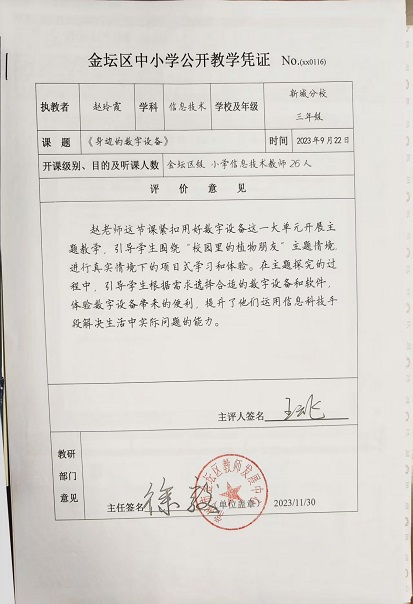 金坛区中小学公开教学凭证 No.(xx0116)
执教者 赵玲霞 学科 信息技术 学校及年级 新城分校 三年级
课题 《身边的数字设备》 时间 2023年9月22日
开课级别、目的及听课人数 金坛区级 小学信息技术教师 26人
评价意见
赵老师这节课紧扣用好数字设备这一大单元开展主
题教学，引导学生围绕“校园里的植物朋友”主题情境，
进行真实情境下的项目式学习和体验。在主题探究的过
程中，引导学生根据需求选择合适的数字设备和软件，
体验数字设备带来的便利，提升了他们运用信息科技手
段解决生活中实际问题的能力。
主评人签名
教研
部门
意见
主任签名 徐毅 （单位盖章） 2023/11/30
坛区教师发展中